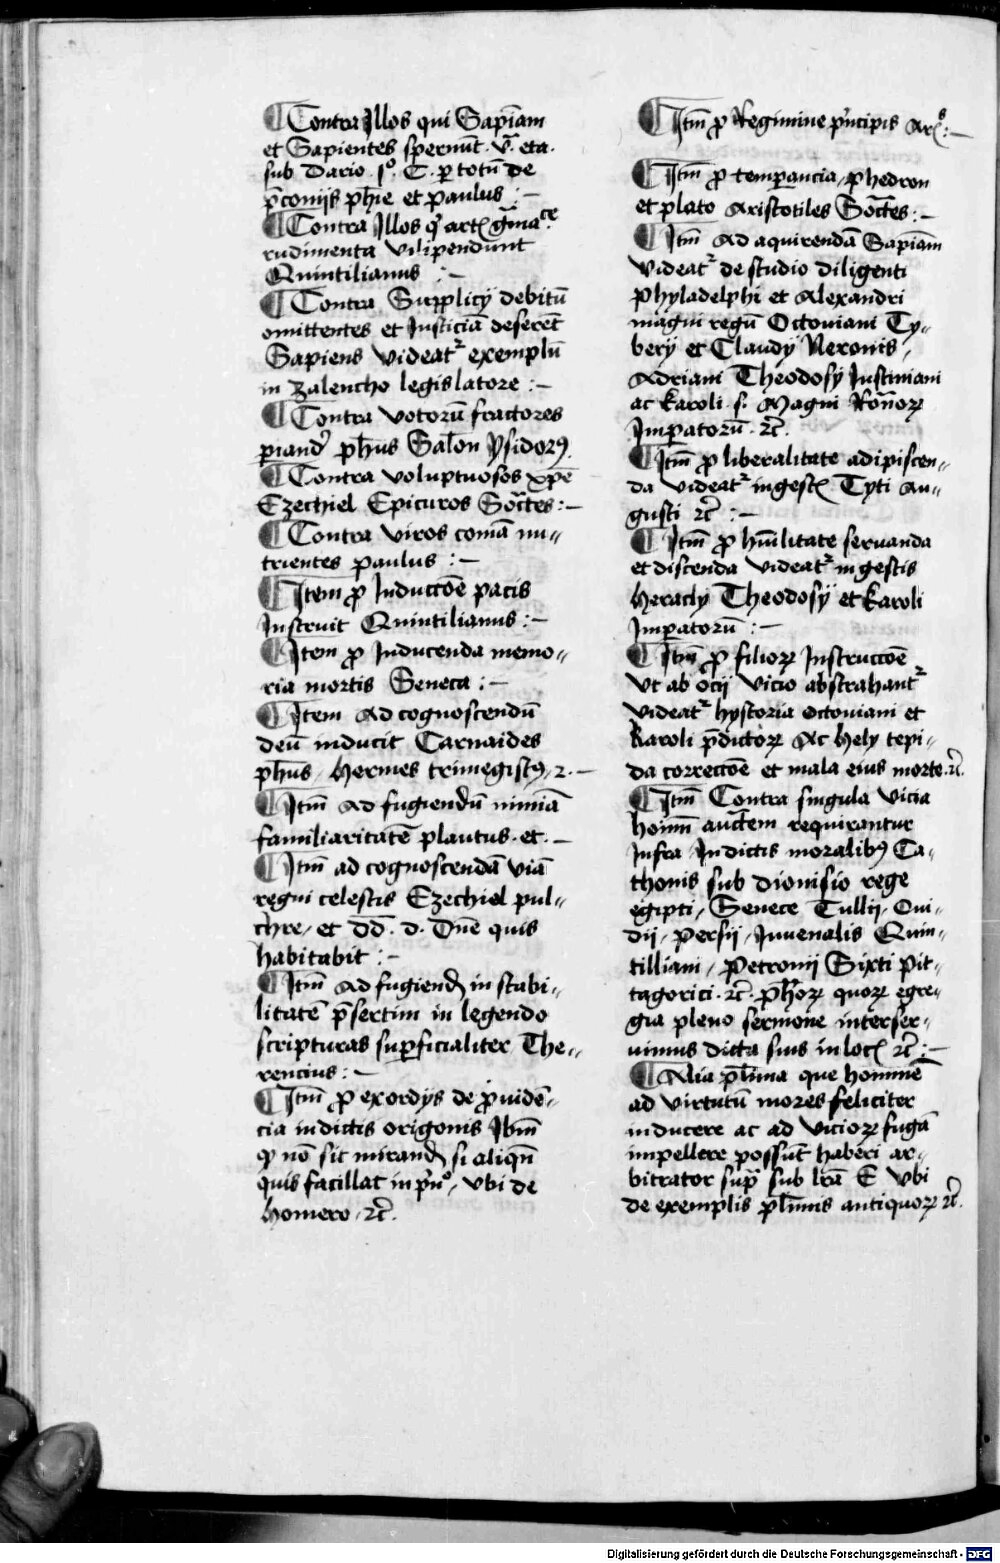 ¶ Contra Illos qui Sapīam
et Sapientes spernūt . v̄ . eta .
sub Dario . sº . C . ꝑ totū de
p̄conijs ph̄ie et paulus :—
¶ Contra Illos qͥ artꝭ gͣmaͨͤ
rudimenta vilipendunt
Quintilianus :—
¶ Contra Supplicÿ debitū
omittentes et Iusticiā deserēt
Sapiens videatᷣ exemplū
in Zalencho legislatore :—
¶ Contra votorū fractores
ph̄us Salon Ysidorꝯ
¶ Contra voluptuosos xp̄e
Ezechiel Epicuros Soc̄tes :—
¶ Contra viros comā nu〃
trientes paulus :—
¶ Item ꝓ Inducc̄oē pacis
Instruit Quintilianus :—
¶ Item ꝓ Inducenda memo〃
ria mortis Seneca :—
¶ Item Ad cognoscendū
deū inducit Carnaides
ph̄us / Hermes trimegistꝯ / 2 . —
¶ Itm̄ Ad fugiendū nimiā
familiaritatē plautus . et . —
¶ Itm̄ ad cognoscendā viā
regni celestis Ezechiel pul〃
chre / et dd̄ . d . Dn̄e quis
habitabit :—
¶ Itm̄ Ad fugiend̄ in stabi〃
litatē p̄sertim in legendo
scripturas suꝑficialiter The〃
rencius :—
¶ Itm̄ ꝓ exordÿs de ꝓuidē〃
cia in dictis origonis Ibm̄
ꝙ nō sit mirand̄ si aliqn̄
quis facillat in pͥnº / vbi de
Homero / ⁊c̄ .
¶ Itm̄ ꝓ Regimine pͥncipis Arꝭˢ :—
¶ Itm̄ ꝓ temperancia / phedron
et plato Aristotiles Soc̄tes :—
¶ Itm̄ Ad aquirendā Sapīam
videatᷣ de studio diligenti
Phyladelphi et Alexandri
magni regū Octoviani Ty〃
berÿ et Claudÿ Neronis /
Adriani Theodosÿ Iustiniani
ac karoli . s . Magni Ron̄oꝝ
Imꝑatorū . ⁊c̄ .
¶ Itm̄ ꝓ liberalitate adipiscen〃
da videatᷣ in gestꝭ Tyti Au〃
gusti ⁊c̄ :—
¶ Itm̄ ꝓ hūilitate seruanda
et discenda videatᷣ in gestis
Heraclÿ Theodosÿ et karoli
Imꝑatorū :—
¶ Itm̄ ꝓ filioꝝ Instrucc̄oē
vt ab ocij vicio abstrahantᷣ
videatᷣ hystoria octoviani et
karoli p̄dictoꝝ Ac Hely tepi〃
da correcc̄oē et mala eius morte . ⁊c̄ .
¶ Itm̄ Contra singula vicia
hoīm auctem requirantur
Infra In dictis moralibꝯ Ca〃
thonis sub dionisio rege
egipti / Senece Tullij / Oui〃
dij / Persij / Iuuenalis Quin〃
tilliani / Petronij Sixti pit〃
tagorici . ⁊c̄ . ph̄oꝝ quoꝝ egre〃
gia pleno sermone interser〃
uimus dicta suis in locꝭ ⁊c̄ :—
¶ Alia pl̄ima que hominē
ad virtutū mores feliciter
inducere ac ad vicioꝝ fugā
impellere possūt haberi ar〃
bitrator supͣ sub lr̄a E vbi
de exemplis pl̄imis antiquoꝝ ⁊c̄ .
Digitalisierung gefördert durch die Deutsche Forschungsgemeinschaft - DFG